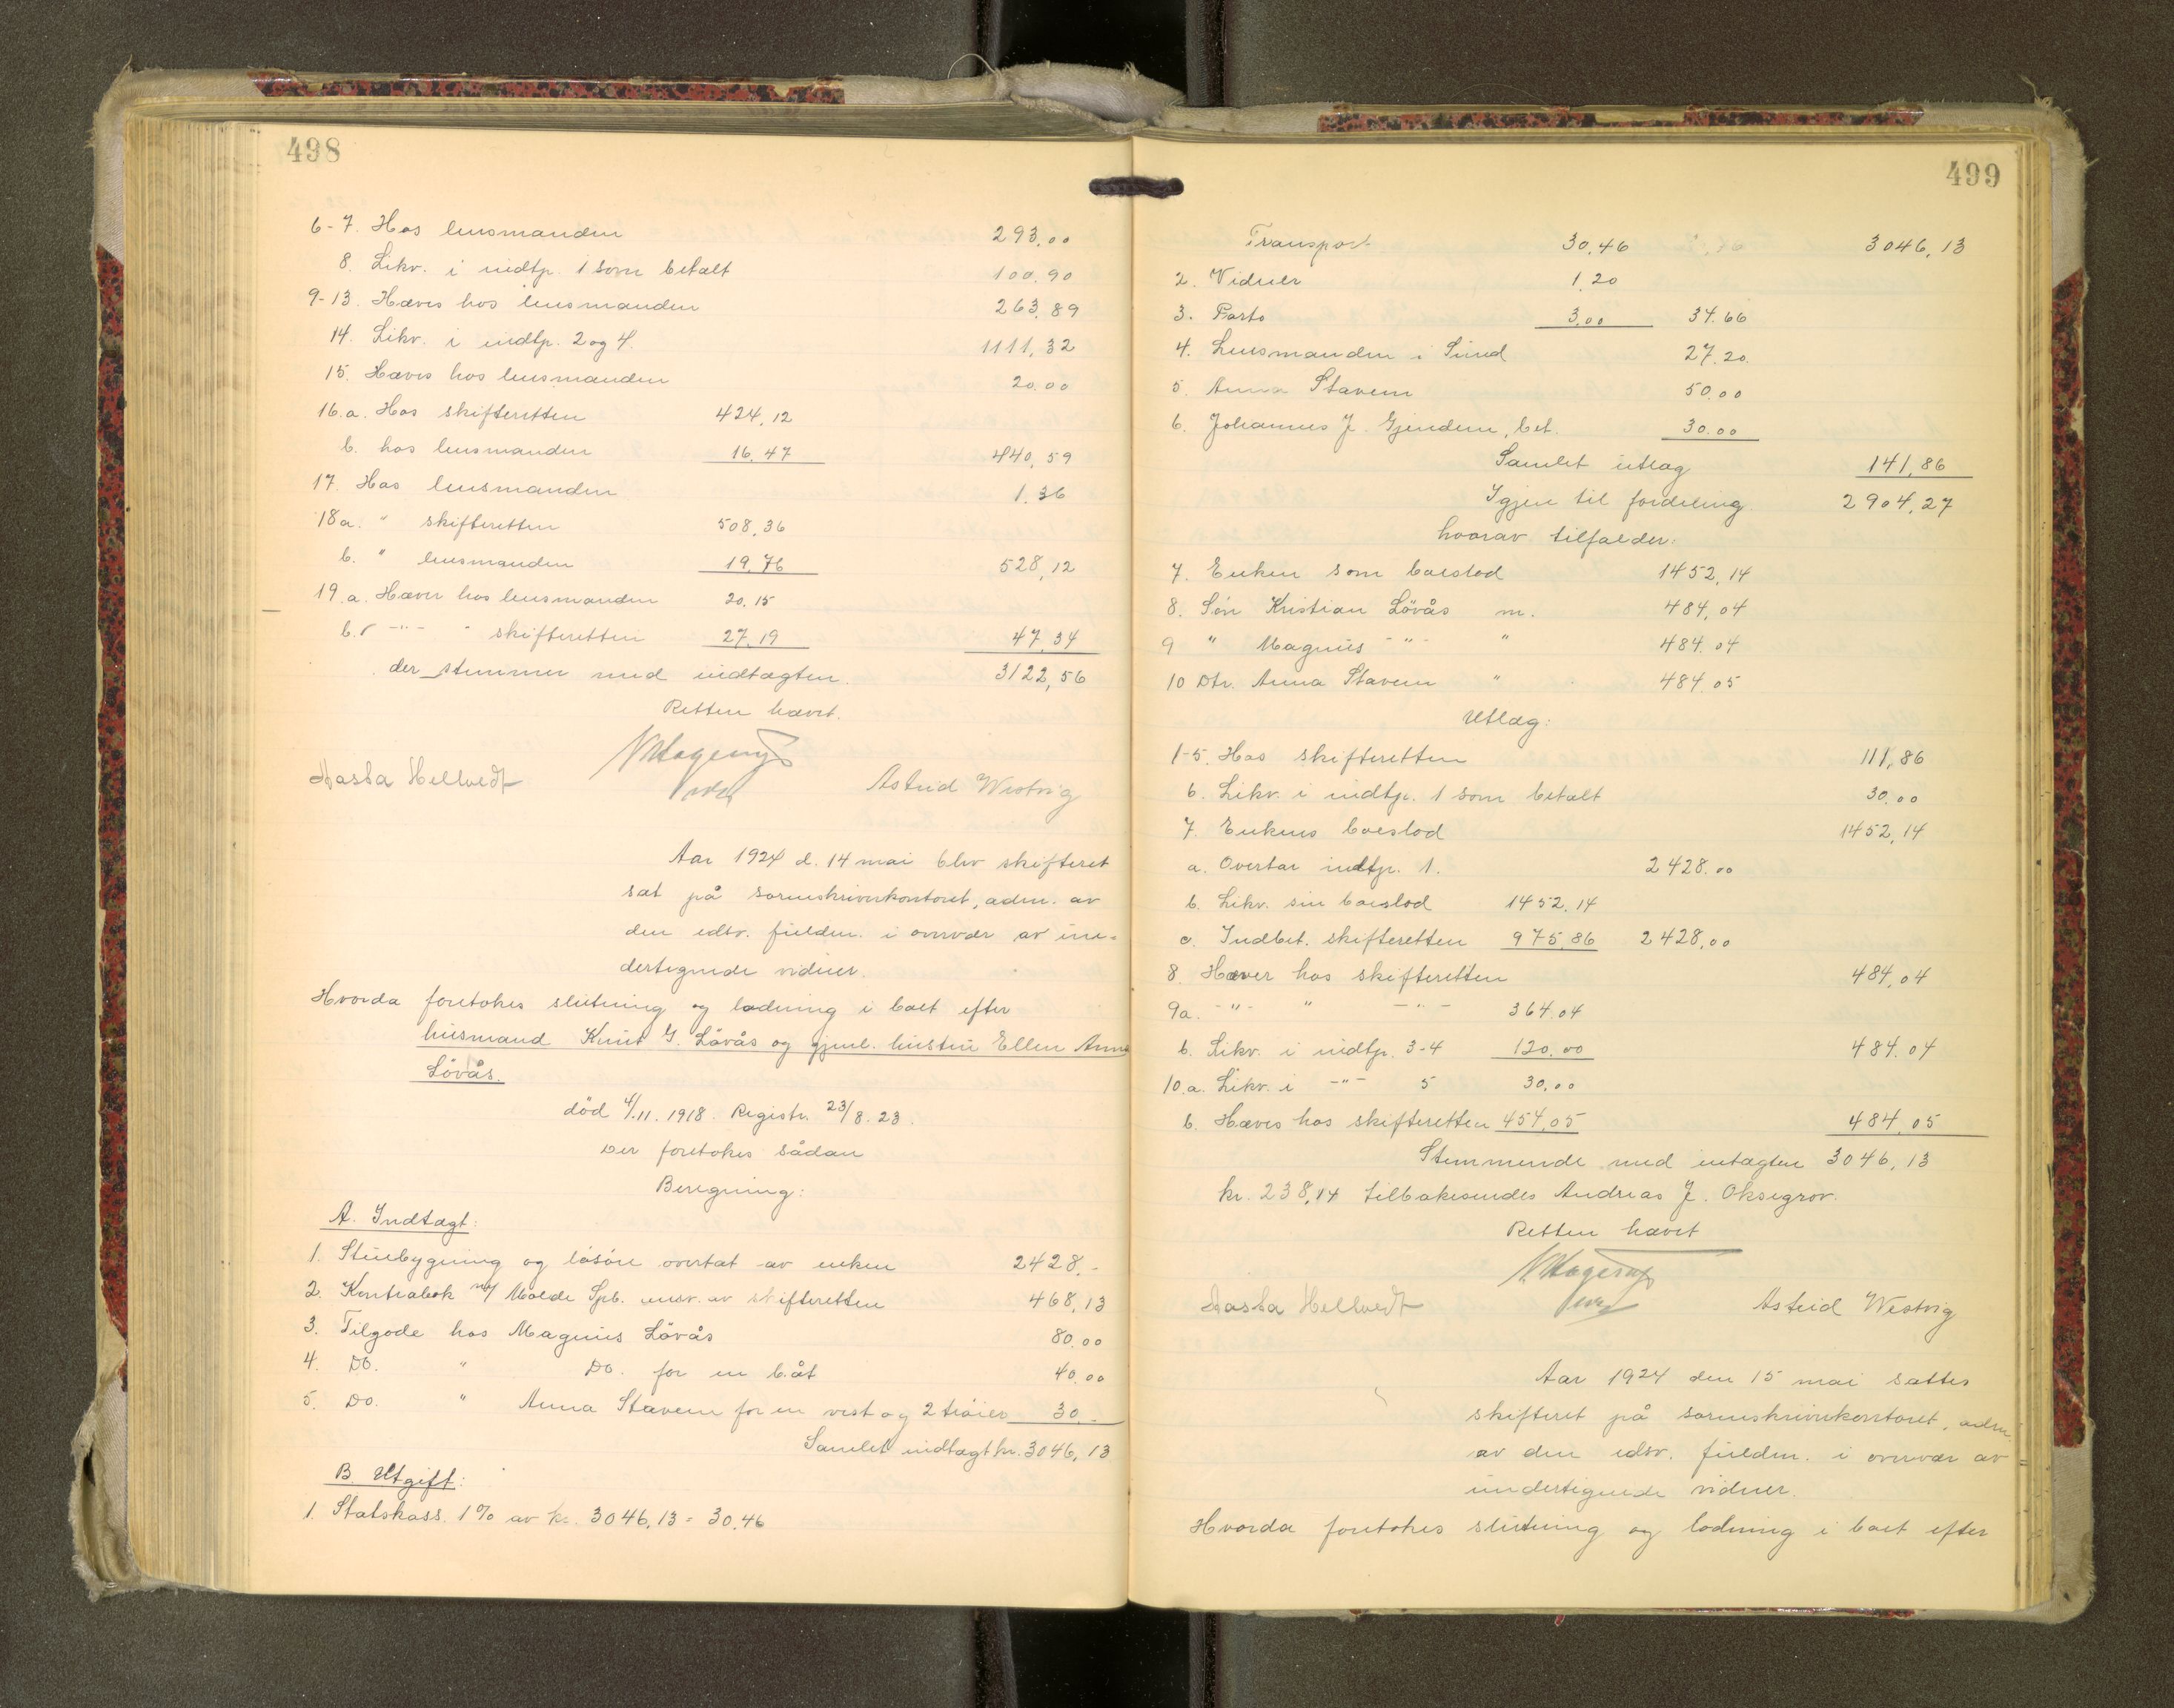 498
6-7. Hos lensmanden 293,00
8. Likv. i indtp. 1 som betalt 100,90
9-13. Hæves hos lensmanden 263,89
14. Likv. i indtp. 2 og 4. 1111,32
15. Hæves hos lensmanden 20.00
16.a. Hos skifteretten 424,12
b. hos lensmanden 16,47 440,59
17. Hos lensmanden 1.36
18a. " skifteretten 508,36
b. " lensmanden 19,76 528,12
19.a. Hæver hos lensmanden 20.15
b. -"- " skifteretten 27,19 47,34
der stemmer med indtægten. 3122,56
Retten hævet.
Aasta Hellvedt Astrid Westvig
Aar 1924 d. 14 mai blev skifteret
sat på sorenskriverkontoret, adm. av
den edsv. fuldm. i overvær av un-
dertegnede vidner.
Hvorda foretokes slutning og lodning i boet efter
husmand Knut G. Lövås og gjenl. hustru Ellen Anna
Lövås.
död 4/11. 1918. Registr. 23/8. 23.
Der foretokes sådan
Beregning:
A. Indtægt:
1. Stuebygning og lösöre overtat av enken 2428.-
2. Kontrabok m/ Molde Spb. insv. av skifteretten 468,13
3. Tilgode hos Magnus Lövås 80.00
4. Do. " Do. for en båt 40.00
5. Do. " Anna Stavem for en vest og 2 tröier 30.-
Samlet indtægt kr. 3046,13
B. Utgift:
1. Statskass. 1% av kr. 3046,13 = 30.46
499
Transport 30.46 3046,13
2. Vidner 1.20
3. Porto 3.00 34.66
4. Lensmanden i Sund 27.20.
5. Anna Stavem 50.00
6. Johannes J. Gjendem, bet. 30.00
Samlet utlæg 141,86
Igjen til fordeling. 2904,27
hvorav tilfalder:
7. Enken som boeslod 1452,14
8. Sön Kristian Lövås m. 484,04
9 " Magnus -"- " 484.04
10 Dtr. Anna Stavem " 484.05
Utlæg:
1-5. Hos skifteretten 111,86
6. Likv. i indtp. 1 som betalt 30.00
7. Enkens boeslod 1452,14
a. Overtar indtp. 1. 2428.00
b. Likv. sin boeslod 1452.14
c. Indbet. skifteretten 975,86 2428,00
8. Hæver hos skifteretten 484,04
9a. -"- " -"- 364.04
b. Likv. i indtp. 3-4 120.00 484.04
10.a. Likv. i -"- 5 30.00
b. Hæves hos skifteretten 454,05 484.05
Stemmende med intægten 3046,13
kr. 238,14 tilbakesendes Andreas J. Oksegrov.
Retten hævet
Aasta Hellvedt Astrid Westvig
Aar 1924 den 15 mai sattes
skifteret på sorenskriverkontoret, adm.
av den edsv. fuldm. i overvær av
undertegnede vidner.
Hvorda foretokes slutning og lodning i boet efter